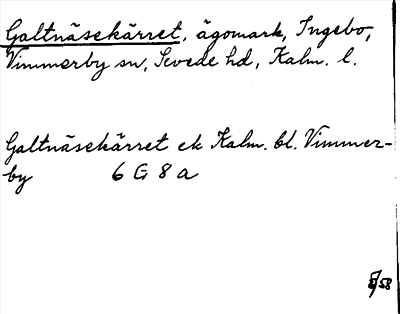 Galtnäsekärret, ägomark, Ingebo,
Vimmerby sn, Sevede hd, Kalm. l.
Galtnäsekärret ek Kalm. bl. Vimmer-
by 6 G 8 a